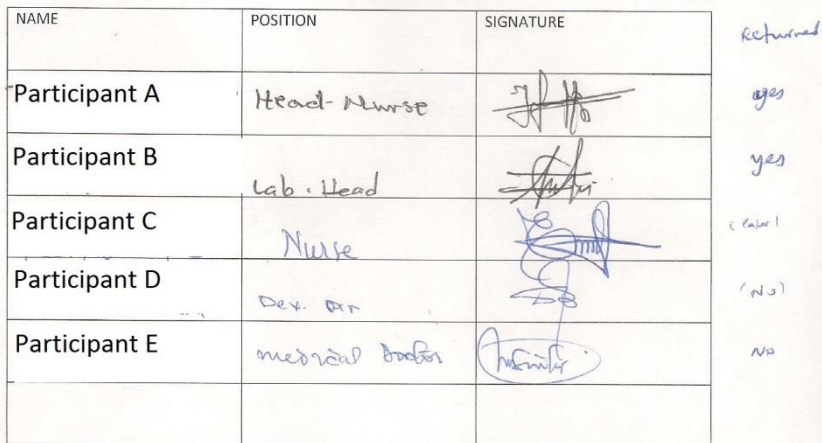 NAME POSITION SIGNATURE Returned
Participant A Head-Nurse yes
Participant B Lab. Head yes
Participant C Nurse (later)
Participant D (No)
Participant E medical Doctor No